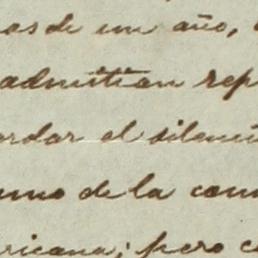 os de un año,
admitian rep
ordar el silen
smo de la com
ricana; pero c